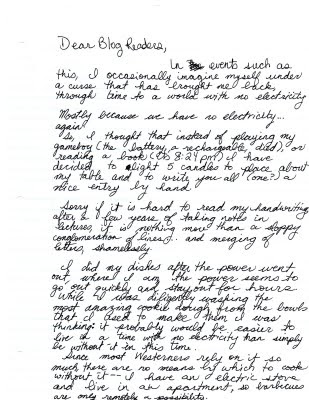 Dear Blog Readers,
In events such as
this, I occasionally imagine myself under
a curse that has brought me back,
through time to a world with no electricity
Mostly because we have no electricity...
again!
So, I thought that instead of playing my
gameboy (the battery, a rechargable, died) or
reading a book (its 8:29 pm) I have
decided to light 5 candles to place about
my table and to write you all (one?) a
nice entry by hand
Sorry if it is hard to read my handwriting
after a few years of taking notes in
lectures, it is nothing more than a sloppy
conglomeration of lines, and merging of
letters, shamelessly
I did my dishes after the power went
out, where I am the power seems to
go out quickly and stay out for hours
While I was diligently washing the
most amazing cookie dough from the bowls
that I used to make them I was
thinking: it probably would be easier to
live in a time with no electricity than simply
be without it in this time.
Since most Westerners rely on it so
much there are no means by which to cook
without it - I have an electric stove
and live in an apartment, so barbicues
are only remotely a possibility.